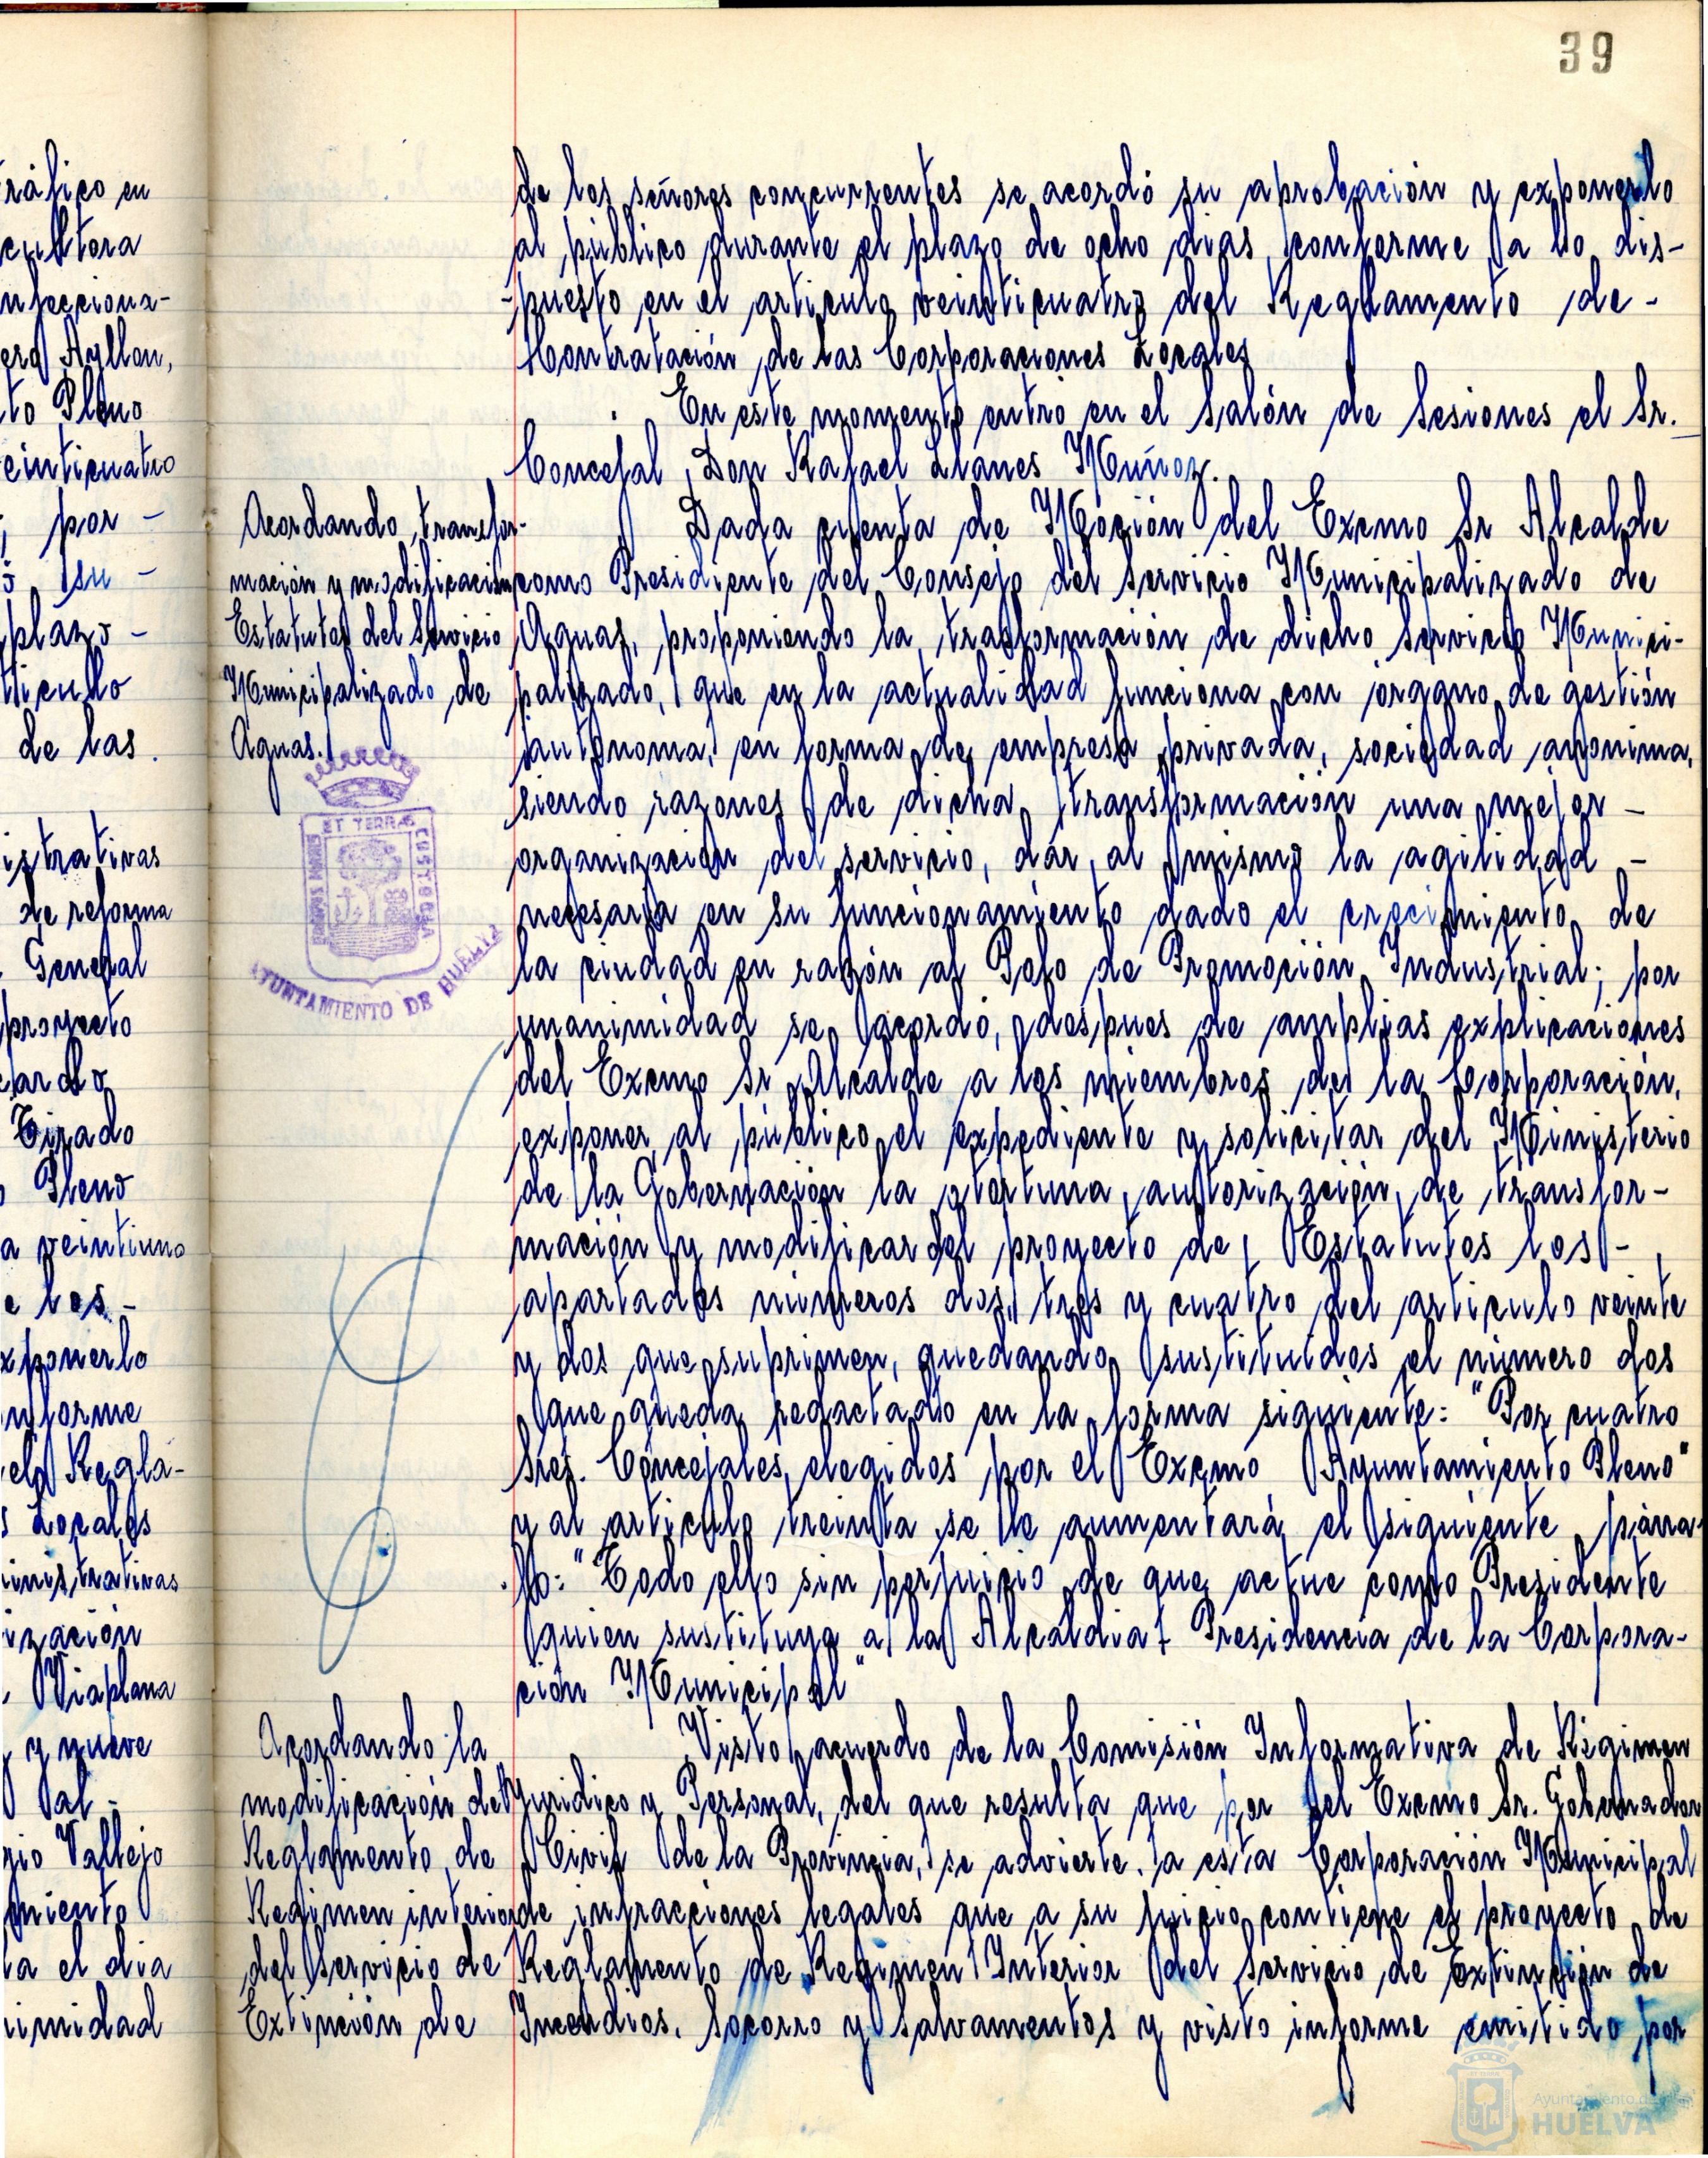 39
ráfico en
cultora
nfecciona-
Ayllon,
to Pleno
einticuatro
por -
su -
plazo -
tículo
de las
istrativas
de reforma
General
proyecto
Tirado
Pleno
a veintiuno
e los -
xponerlo
nforme
el Regla-
s Locales
inistrativas
ización
Viaplana
y nueve
Val -
gio Vallejo
miento
la el dia
imidad
de los señores concurrentes se acordó su aprobación y exponerlo
al público durante el plazo de ocho dias, conforme a lo dis-
-puesto en el articulo veinticuatro del Reglamento de -
Contratación de las Corporaciones Locales
En este momento entró en el Salón de Sesiones el Sr.
Concejal, Don Rafael Llanes Muñoz.
Acordando transfor-
mación y modificación
Estatutos del Servicio
Municipalizado de
Aguas.
Dada cuenta de Moción del Excmo Sr Alcalde
como Presidente del Consejo del Servicio Municipalizado de
Aguas, proponiendo la trasformación de dicho servicio Munici-
palizado, que en la actualidad funciona con órgano de gestión
autónoma, en forma de empresa privada, sociedad anonima,
siendo razones de dicha transformación una mejor -
organización del servicio, dar al mismo la agilidad -
necesaria en su funcionamiento dado el crecimiento de
la ciudad en razón al Polo de Promoción Industrial; por
unanimidad se acordó, despues de amplias explicaciones
del Excmo Sr Alcalde a los miembros de la Corporación,
exponer al público el expediente y solicitar del Ministerio
de la Gobernación la oportuna autorización de transfor-
mación y modificar del proyecto de Estatutos los -
apartados números dos, tres y cuatro del articulo veinte
y dos que suprimen, quedando sustituidos el número dos
que queda redactado en la forma siguiente: "Por cuatro
Sres. Concejales, elegidos por el Excmo Ayuntamiento Pleno"
y al articulo treinta se le aumentará el siguiente párra-
fo: "Todo ello sin perjuicio de que actue como Presidente
quien sustituya a la Alcaldia Presidencia de la Corpora-
ción Municipal"
ET TERRAE
CUSTODIA
PORTUS MARIS
AYUNTAMIENTO DE HUELVA
Acordando la
modificación del
Reglamento de
Regimen interior
del Servicio de
Extinción de
Visto acuerdo de la Comisión Informativa de Régimen
Juridico y Personal, del que resulta que por el Excmo Sr. Gobernador
Civil de la Provincia, se advierte a esta Corporación Municipal
de infracciones legales que a su juicio contiene el proyecto de
Reglamento de Regimen Interior del Servicio de Extinción de
Incendios, Socorro y Salvamentos y visto informe emitido por
Ayuntamiento de
HUELVA